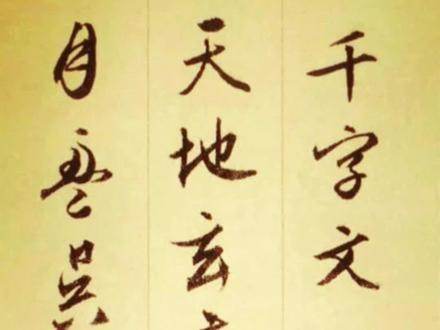 千字文
天地玄
月盈昃